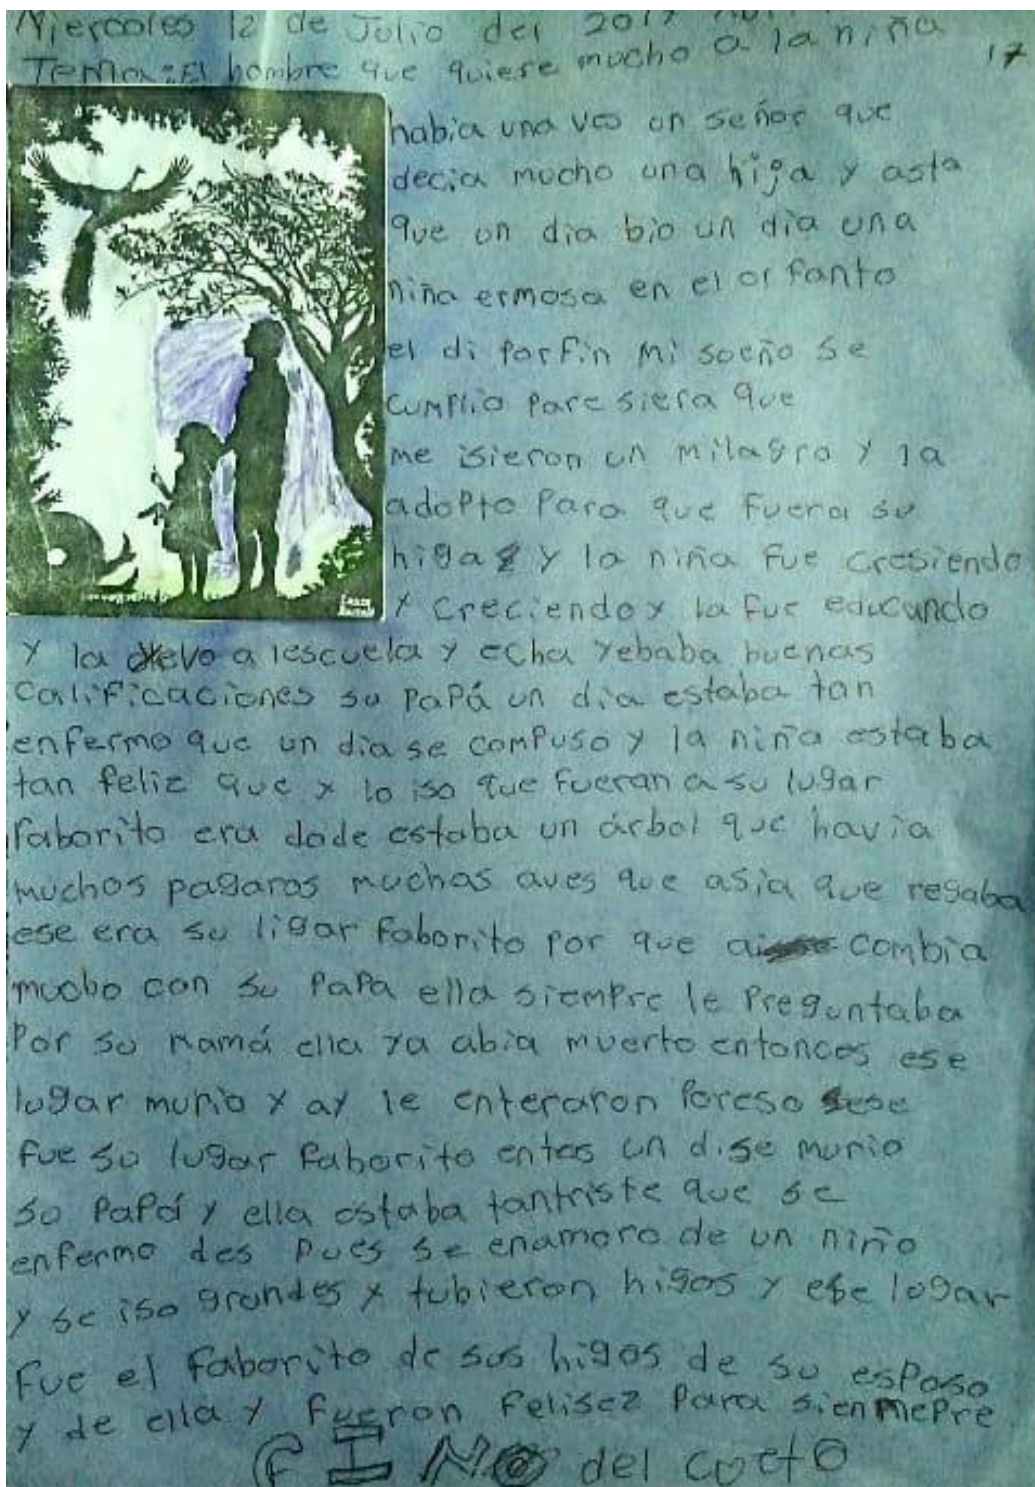 Miercoles 12 de Julio del 2017
Tema: El hombre que quiere mucho a la niña
17
habia una ves un señor que
decia mucho una hija y asta
que un dia bio un dia una
niña ermosa en el orfanto
el di porfin mi soeño se
cumplio pare siera que
me isieron un milagro y la
adopto para que fuera su
higa y la niña fue cresiendo
y creciendo y la fue educando
y la llevo a lescuela y echa yebaba buenas
calificaciones su papá un dia estaba tan
enfermo que un dia se compuso y la niña estaba
tan feliz que y lo iso que fueran a su lugar
faborito era dode estaba un árbol que havia
muchos pagaros muchas aves que asia que regaba
ese era su ligar faborito por que combia
mucho con su papa ella siempre le preguntaba
por su mamá ella ya abia muerto entonces ese
lugar murio y ay le enteraron poreso ese
fue su lugar faborito entes un dise murio
su papá y ella estaba tantriste que se
enfermo des pues se enamoro de un niño
y se iso grandes y tubieron higos y ese logar
fue el faborito de sus higos de su esposo
y de ella y fueron felisez para sienmepre
FIN del coeto